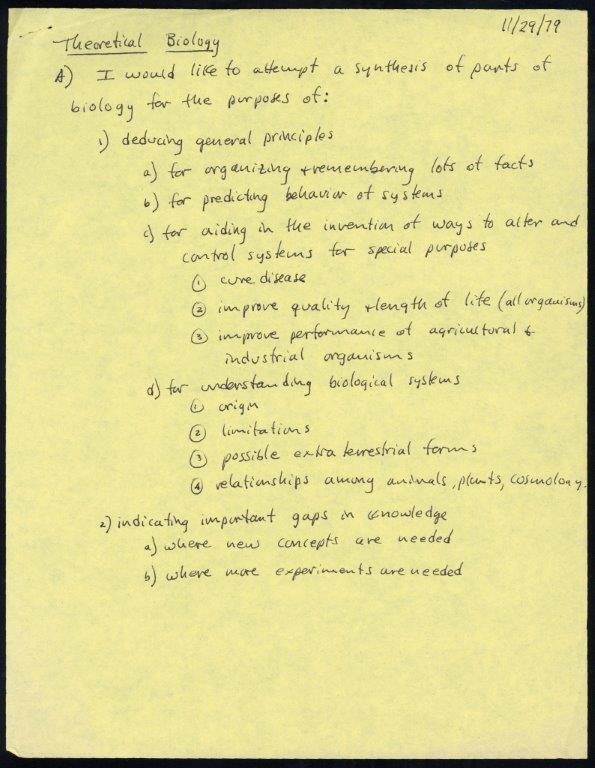 11/29/79
Theoretical Biology
A) I would like to attempt a synthesis of parts of
biology for the purposes of:
1) deducing general principles
a) for organizing + remembering lots of facts
b) for predicting behavior of systems
c) for aiding in the invention of ways to alter and
control systems for special purposes
① cure disease
② improve quality + length of life (all organisms)
③ improve performance of agricultural &
industrial organisms
d) for understanding biological systems
① origin
② limitations
③ possible extraterrestrial forms
④ relationships among animals, plants, cosmology.
2) indicating important gaps in knowledge
a) where new concepts are needed
b) where more experiments are needed